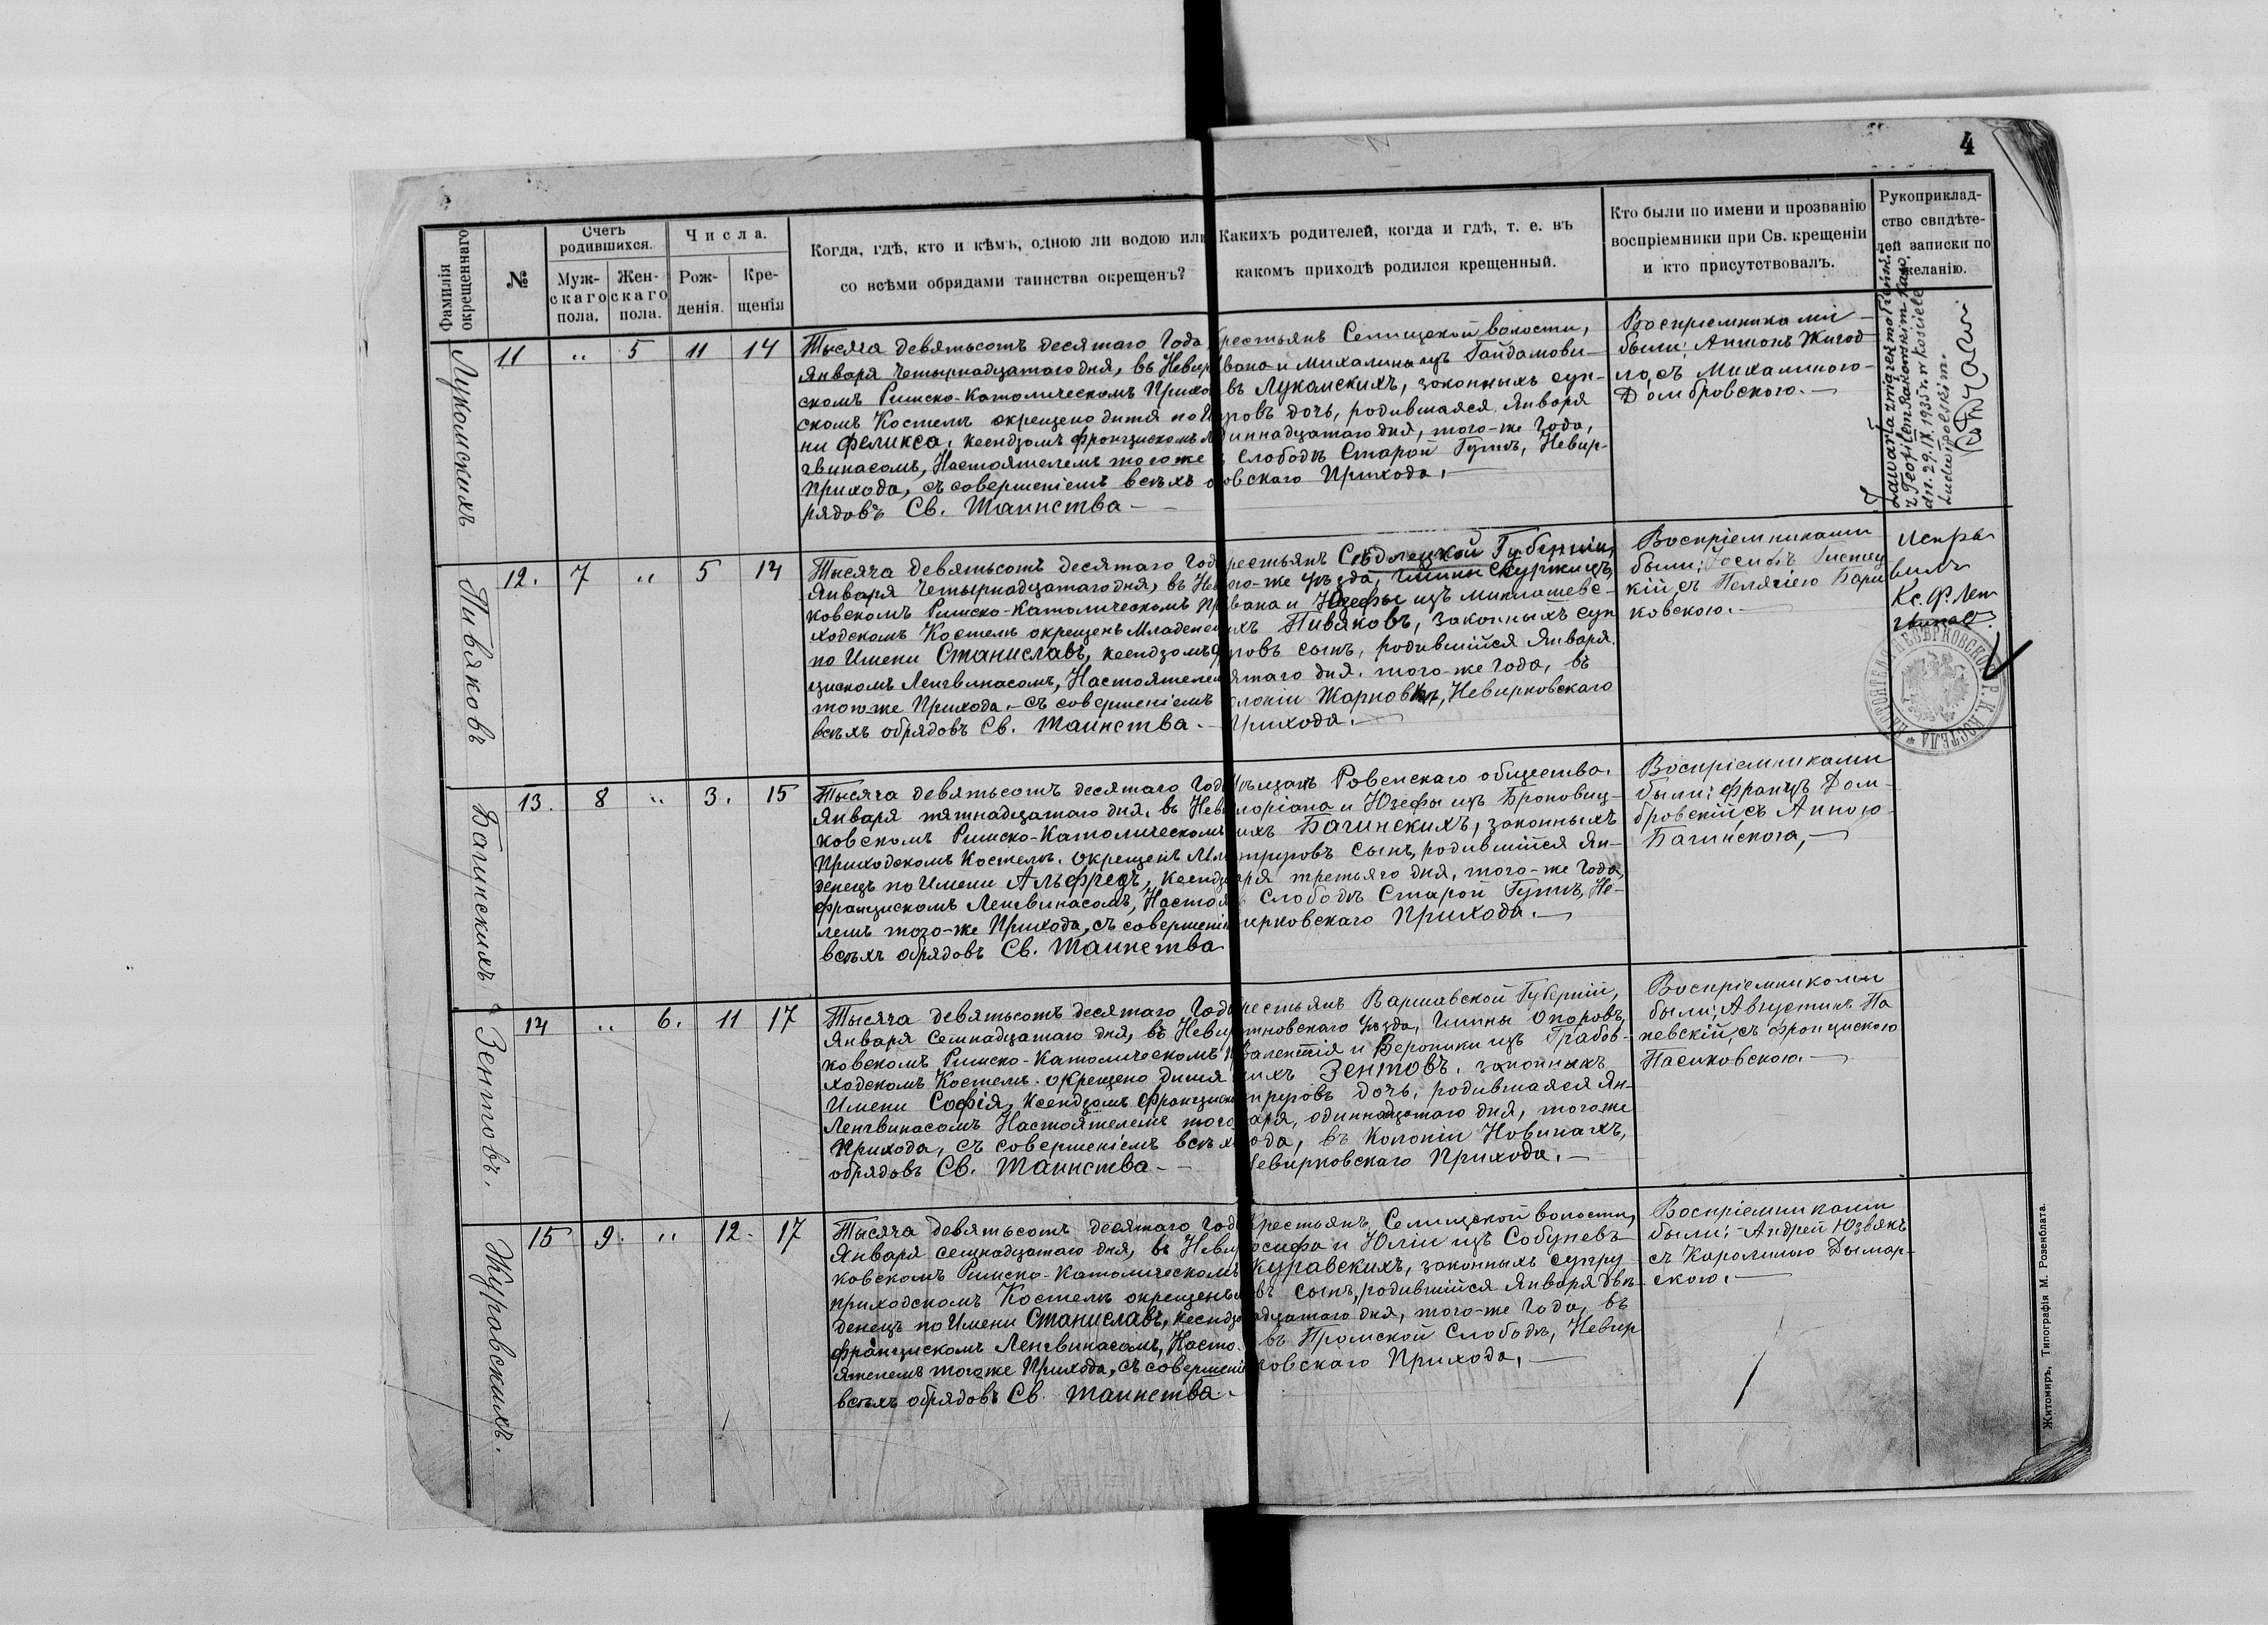 4
Фамилія окрещеннаго
№
Счетъ родившихся.
Муж-
скаго
пола.
Жен-
скаго
пола.
Числа.
Рож-
денія.
Кре-
щенія
Когда, гдѣ, кто и кѣмъ, одною ли водою или
со всѣми обрядами таинства окрещенъ?
Какихъ родителей, когда и гдѣ, т. е. въ
какомъ приходѣ родился крещенный.
Кто были по имени и прозванію
воспріемники при Св. крещеніи
и кто присутствовалъ.
Рукоприклад-
ство свидѣте-
лей записки по
желанію.
Лукомскихъ
11 " 5 11 14
Тысяча девятьсотъ десятаго Года
Января четырнадцатаго дня, въ Невир
скомъ Римско-Католическомъ Прихо
скомъ Костелѣ окрещено дитя по И
ни Феликса, ксендзомъ Францискомъ Л
гвинасомъ, Настоятелемъ того же
Прихода, съ совершеніемъ всѣхъ о
рядовъ Св. Таинства —
рестьянъ Селищской волости,
вана и Михалины изъ Гайдамови-
въ Лукомскихъ, законныхъ суп-
уговъ дочь, родившаяся Января
диннадцатаго дня, того-же Года,
Слободѣ Старой Гутѣ, Невир-
овскаго Прихода. —
Воспріемниками
были: Антонъ Жигод
ло, съ Михалиною
Домбровскою. —
Zawarła związek małżeński
z Teofilem Rakowskim Kaw.
dn. 29.IX.1935 r. w kościele
Ludwipolskim.
Пивяковъ
12. 7 " 5 14
Тысяча девятьсотъ десятаго Год
Января четырнадцатаго дня, въ Не
ковскомъ Римско-Католическомъ Пр
ходскомъ Костелѣ окрещенъ Младенец
по Имени Станиславъ, ксендзомъ Ф
цискомъ Ленгвинасомъ, Настоятелем
того же Прихода. — съ совершеніемъ
всѣхъ обрядовъ Св. Таинства. —
рестьянъ Сѣдлецкой Губерніи,
ого-же уѣзда, Гмины Скуржецъ,
вана и Юзефы изъ Миклашевс-
ихъ Пивяковъ, законныхъ суп
говъ сынъ, родившійся Января
ятаго дня, того-же Года, въ
олоніи Жарновкѣ, Невирковскаго
Прихода. —
Воспріемниками
были: Іосифъ
кій, съ Пелягіею Бари
ковскою. —
Испра
вилъ
Кс. Ф. Лен
гвинас
Багинскихъ
13. 8 " 3. 15
Тысяча девятьсотъ десятаго Год
Января пятнадцатаго дня, въ Нев
ковскомъ Римско-Католическомъ
Приходскомъ Костелѣ. окрещенъ Мла
денецъ по Имени Альфредъ, ксендз
Францискомъ Ленгвинасомъ, Настоя
лемъ того-же Прихода, съ совершені
всѣхъ обрядовъ Св. Таинства
ѣщанъ Ровенскаго общества.
лоріана и Юзефы изъ Броновиц-
ихъ Багинскихъ, законныхъ
упруговъ сынъ, родившійся Ян-
аря третьяго дня, того-же Года,
Слободѣ Старой Гутѣ, Не-
ирковскаго Прихода. —
Воспріемниками
были: Францъ Дом-
бровскій, съ Анною
Багинскою, —
Зентовъ.
14 " 6. 11 17
Тысяча девятьсотъ десятаго Год
Января семнадцатаго дня, въ Невир
ковскомъ Римско-Католическомъ П
ходскомъ Костелѣ. окрещено дитя
Имени Софія, Ксендзомъ Франциск
Ленгвинасомъ Настоятелемъ того
Прихода, съ совершеніемъ всѣх
обрядовъ Св. Таинства —
рестьянъ Варшавской Губерній,
тновскаго уѣзда, Гмины Опоровъ,
Валентія и Вероники изъ Грабов-
ихъ Зентовъ, законныхъ
пруговъ дочь, родившаяся Ян-
аря, одиннадцатаго дня, того же
ода, въ Колоніи Новинахъ,
Невирковскаго Прихода. —
Воспріемниками
были; Августинъ Па
невскій, съ Францискою
Пасиковскою. —
Журавскихъ.
15 9. " 12. 17
Тысяча девятьсотъ десятаго Год
Января семнадцатаго дня, въ Неви
ковскомъ Римско-Католическомъ
приходскомъ Костелѣ окрещенъ
денецъ по Имени Станиславъ, ксендз
Францискомъ Ленгвинасомъ, Насто-
ятелемъ того же Прихода, съ совершені
всѣхъ обрядовъ Св. Таинства. —
Крестьянъ Селищской волости,
осифа и Юліи изъ Собупевъ
журавскихъ, законныхъ супру
въ сынъ, родившійся Января двѣ-
адцатаго дня, того-же Года, въ
въ Тромской Слободѣ, Невир
ковскаго Прихода, —
Воспріемниками
были; Андрей Юзвякъ
съ Каролиною Дымар-
скою. —
Житомиръ, Типографія М. Розенблата.